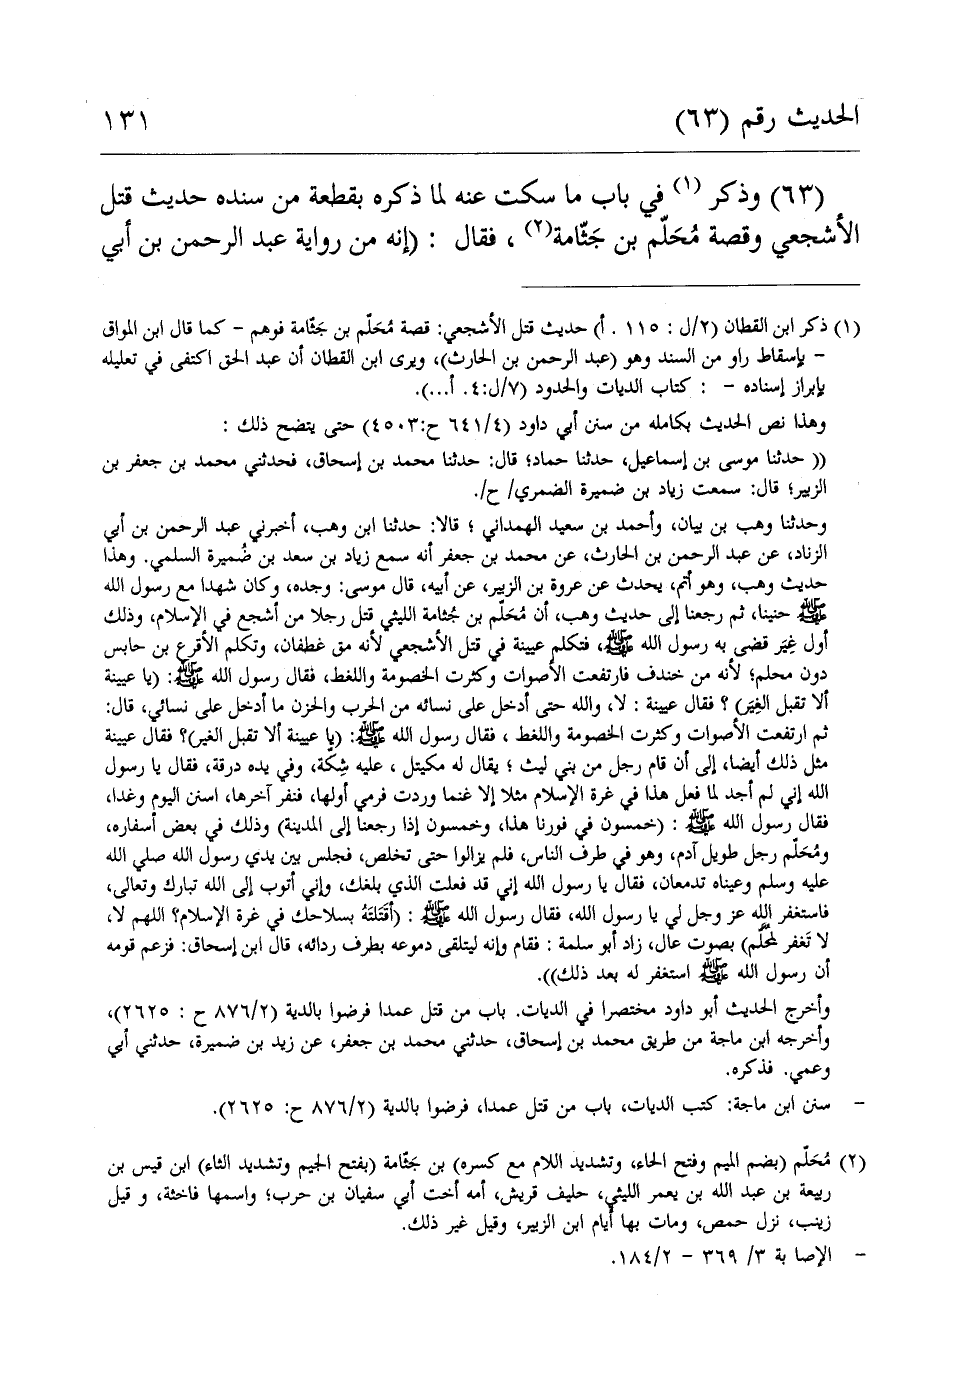 الحديث رقم (٦٣)
١٣١
(٦٣) وذكر (١) في باب ما سكت عنه لما ذكره بقطعة من سنده حديث قتل
الأشجعي وقصة مُحَلّم بن جَثّامة(٢) ، فقال : (إنه من رواية عبد الرحمن بن أبي
(١) ذكر ابن القطان (٢/ل : ١١٥ . أ) حديث قتل الأشجعي: قصة مُحَلّم بن جَثّامة فوهم - كما قال ابن المواق
- بإسقاط راو من السند وهو (عبد الرحمن بن الحارث)، ويرى ابن القطان أن عبد الحق اكتفى في تعليله
بإبراز إسناده - : كتاب الديات والحدود (٧/ل:٤. أ...).
وهذا نص الحديث بكامله من سنن أبي داود (٦٤١/٤ ح:٤٥٠٣) حتى يتضح ذلك :
(( حدثنا موسى بن إسماعيل، حدثنا حماد؛ قال: حدثنا محمد بن إسحاق، فحدثني محمد بن جعفر بن
الزبير؛ قال: سمعت زياد بن ضميرة الضمري/ ح/.
وحدثنا وهب بن بيان، وأحمد بن سعيد الهمداني ؛ قالا: حدثنا ابن وهب، أخبرني عبد الرحمن بن أبي
الزناد، عن عبد الرحمن بن الحارث، عن محمد بن جعفر أنه سمع زياد بن سعد بن ضُميرة السلمي. وهذا
حديث وهب، وهو أتم، يحدث عن عروة بن الزبير، عن أبيه، قال موسى: وجده، وكان شهدا مع رسول الله
ﷺ حنينا، ثم رجعنا إلى حديث وهب، أن مُحَلّم بن جُثامة الليثي قتل رجلا من أشجع في الإسلام، وذلك
أول غِيَر قضى به رسول الله ﷺ، فتكلم عيينة في قتل الأشجعي لأنه مق غطفان، وتكلم الأقرع بن حابس
دون محلم؛ لأنه من خندف فارتفعت الأصوات وكثرت الخصومة واللغط، فقال رسول الله ﷺ: (يا عيينة
ألا تقبل الغِيَر) ؟ فقال عيينة : لا، والله حتى أدخل على نسائه من الحرب والحزن ما أدخل على نسائي، قال:
ثم ارتفعت الأصوات وكثرت الخصومة واللغط ، فقال رسول الله ﷺ: (يا عيينة ألا تقبل الغير)؟ فقال عيينة
مثل ذلك أيضا، إلى أن قام رجل من بني ليث ؛ يقال له مكيتل ، عليه شِكّة، وفي يده درقة، فقال يا رسول
الله إني لم أجد لما فعل هذا في غرة الإسلام مثلا إلا غنما وردت فرمي أولها، فنفر آخرها، اسنن اليوم وغدا،
فقال رسول الله ﷺ : (خمسون في فورنا هذا، وخمسون إذا رجعنا إلى المدينة) وذلك في بعض أسفاره،
ومُحَلّم رجل طويل آدم، وهو في طرف الناس، فلم يزالوا حتى تخلص، فجلس بين يدي رسول الله صلي الله
عليه وسلم وعيناه تدمعان، فقال يا رسول الله إني قد فعلت الذي بلغك، وإني أتوب إلى الله تبارك وتعالى،
فاستغفر الله عز وجل لي يا رسول الله، فقال رسول الله ﷺ : (أقَتَلتَهُ بسلاحك في غرة الإسلام؟ اللهم لا،
لا تَغفر لمُحَلّم) بصوت عال، زاد أبو سلمة : فقام وإنه ليتلقى دموعه بطرف ردائه، قال ابن إسحاق: فزعم قومه
أن رسول الله ﷺ استغفر له بعد ذلك)).
وأخرج الحديث أبو داود مختصرا في الديات. باب من قتل عمدا فرضوا بالدية (٨٧٦/٢ ح : ٢٦٢٥)،
وأخرجه ابن ماجة من طريق محمد بن إسحاق، حدثني محمد بن جعفر، عن زيد بن ضميرة، حدثني أبي
وعمي. فذكره.
- سنن ابن ماجة: كتب الديات، باب من قتل عمدا، فرضوا بالدية (٨٧٦/٢ ح: ٢٦٢٥).
(٢) مُحَلّم (بضم الميم وفتح الحاء، وتشديد اللام مع كسره) بن جَثّامة (بفتح الجيم وتشديد الثاء) ابن قيس بن
ربيعة بن عبد الله بن يعمر الليثي، حليف قريش، أمه أخت أبي سفيان بن حرب؛ واسمها فاختة، و قيل
زينب، نزل حمص، ومات بها أيام ابن الزبير، وقيل غير ذلك.
- الإصا بة ٣/ ٣٦٩ - ١٨٤/٢.